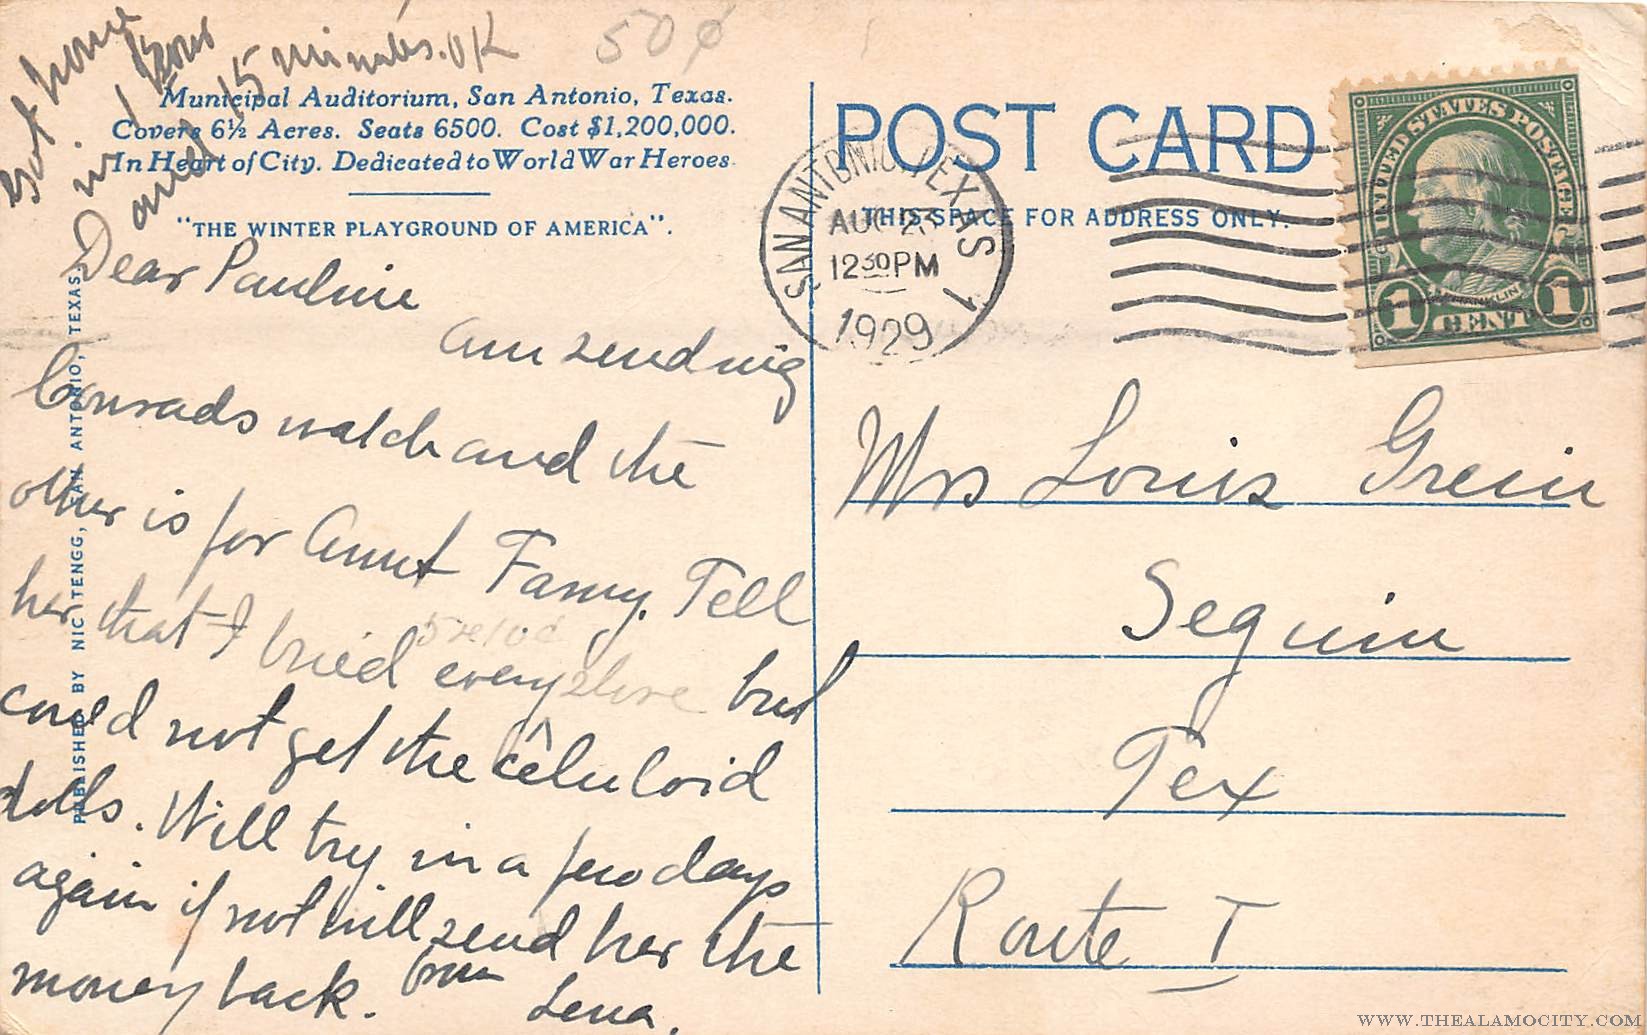 Got home
in 1 hour
and 15 minutes. OK
50¢
Municipal Auditorium, San Antonio, Texas.
Covers 6½ Acres. Seats 6500. Cost $1,200,000.
In Heart of City. Dedicated to World War Heroes
"THE WINTER PLAYGROUND OF AMERICA".
Dear Pauline
am sending
Conrads watch and the
other is for Aunt Fanny. Tell
her that I tried every 5 & 10¢ store but
could not get the celuloid
dolls. Will try in a few days
again if not will send her the
money back. from
Lena.
PUBLISHED BY NIC TENGG, SAN ANTONIO, TEXAS.
POST CARD
THIS SPACE FOR ADDRESS ONLY.
SAN ANTONIO, TEXAS 1
AUG 23
12 30 PM
1929
UNITED STATES POSTAGE
FRANKLIN
1 CENT 1
Mrs Louis Grein
Seguin
Tex
Route I
WWW.THEALAMOCITY.COM